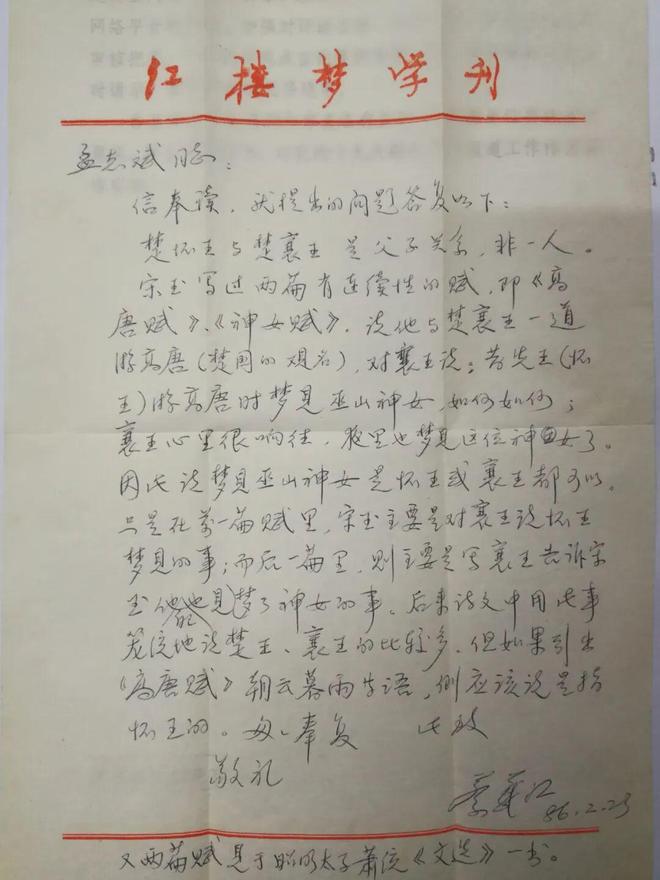 红楼梦学刊
孟志斌同志：
信奉读，就提出的问题答复以下：
楚怀王与楚襄王是父子关系，非一人。
宋玉写过两篇有连续性的赋，即《高
唐赋》、《神女赋》，说他与楚襄王一道
游高唐（楚国的观名），对襄王说：昔先王（怀
王）游高唐时梦见巫山神女，如何如何；
襄王心里很响往，夜里也梦见这位神女了。
因此说梦见巫山神女是怀王或襄王都可以，
只是在第一篇赋里，宋玉主要是对襄王说怀王
梦见的事；而后一篇里，则主要是写襄王告诉宋
玉他也梦见了神女的事。后来诗文中用此事
笼统地说楚王、襄王的比较多，但如果引出
《高唐赋》朝云暮雨等语，则应该说是指
怀王的。匆匆奉复 此致
敬礼
蔡义江
86.2.23
又两篇赋见于昭明太子萧统《文选》一书。